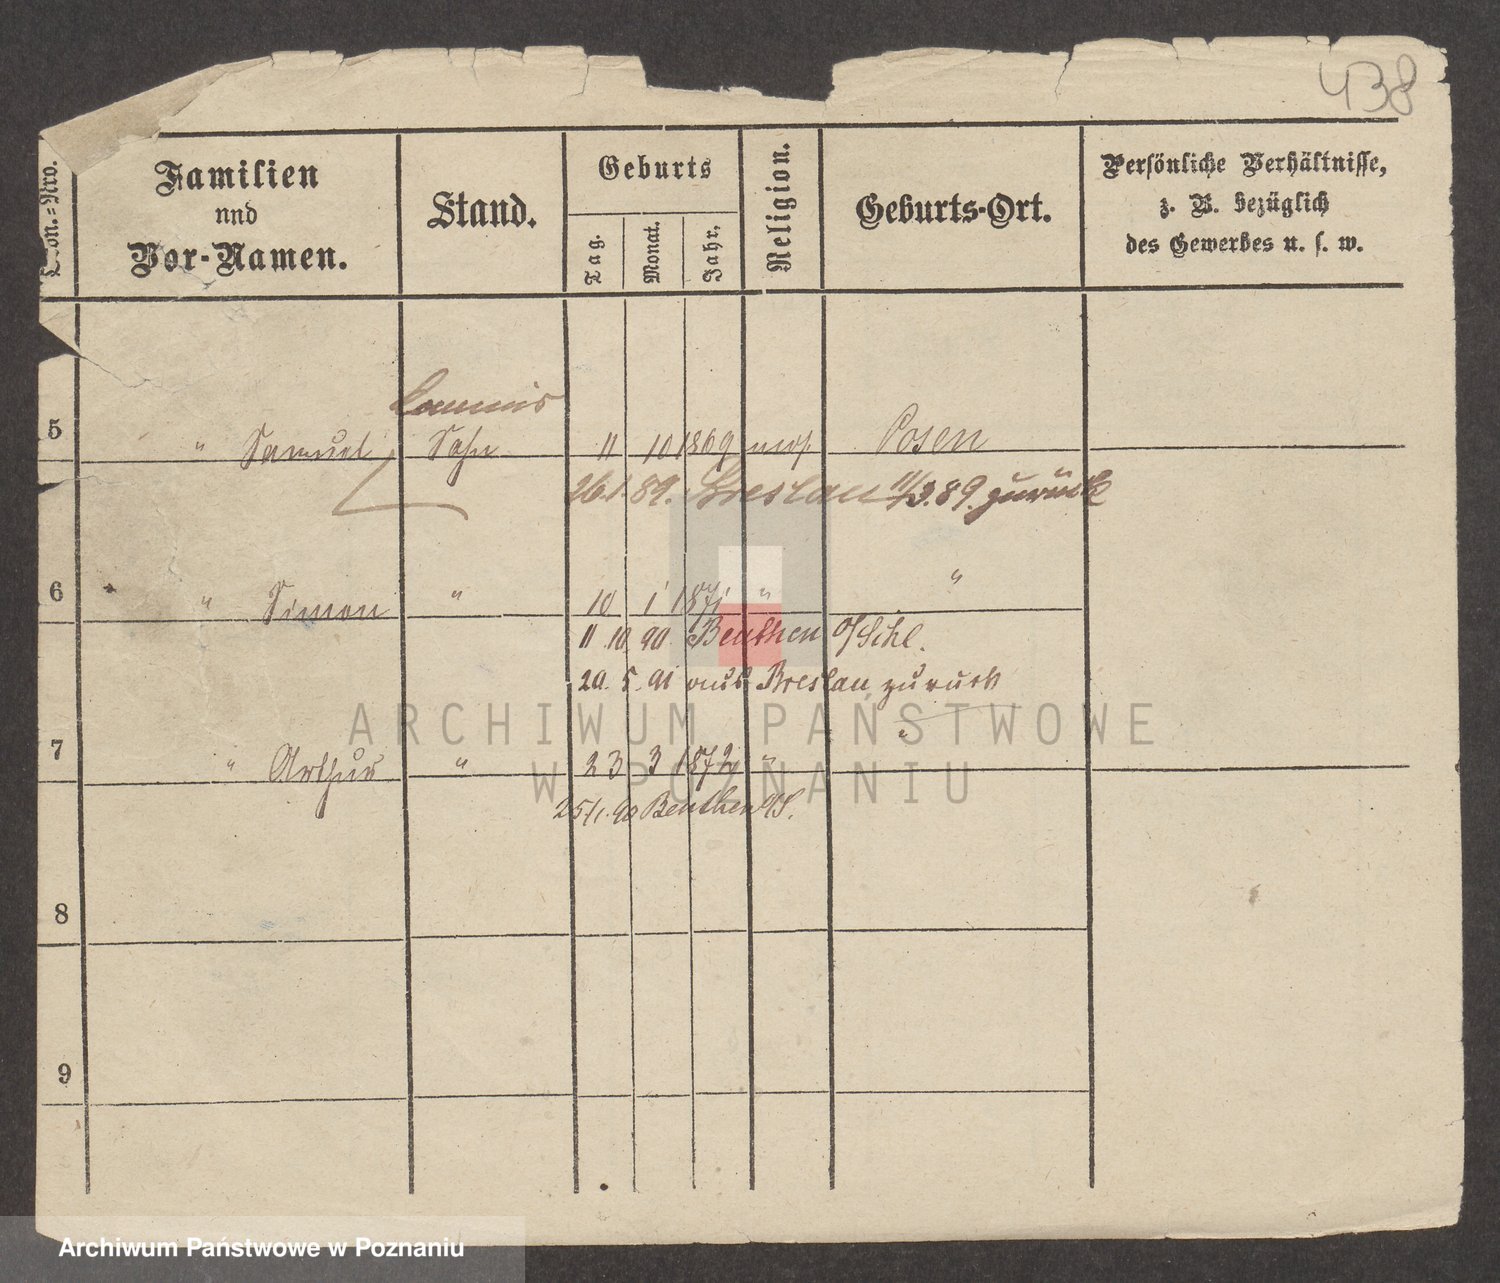 438
Con.=Nro.
Familien
und
Vor-Namen.
Stand.
Geburts
Tag.
Monat.
Jahr.
Religion.
Geburts-Ort.
Persönliche Verhältnisse,
z. B. bezüglich
des Gewerbes u. s. w.
Commis
5 " Samuel Sohn 11 10 1869 mos. Posen
26.1.89. Breslau 11/3.89. zurück
6 " Simon " 10 1 1871 " "
11 10 90 Beuthen O/Schl.
20. 5. 91 aus Breslau zurück
7 " Arthur " 23 3 1872 " "
25/1.90 Beuthen O/S.
8
9
ARCHIWUM PAŃSTWOWE
W POZNANIU
Archiwum Państwowe w Poznaniu